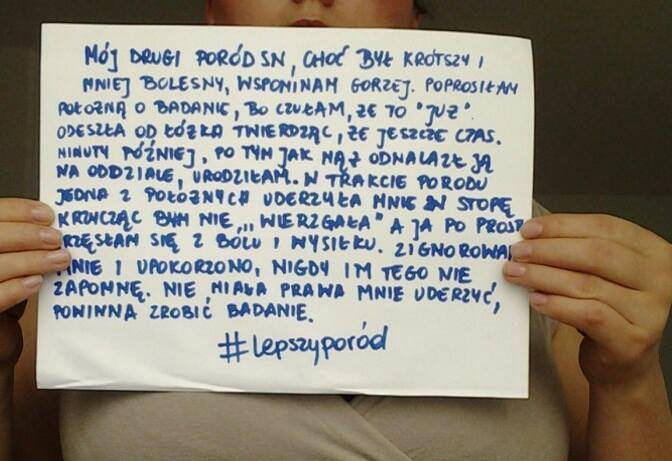 MÓJ DRUGI PORÓD SN, CHOĆ BYŁ KRÓTSZY I
MNIEJ BOLESNY, WSPOMINAM GORZEJ. POPROSIŁAM
POŁOŻNĄ O BADANIE, BO CZUŁAM, ŻE TO "JUŻ".
ODESZŁA OD ŁÓŻKA TWIERDZĄC, ŻE JESZCZE CZAS.
MINUTY PÓŹNIEJ, PO TYM JAK MĄŻ ODNALAZŁ JĄ
NA ODDZIALE, URODZIŁAM. W TRAKCIE PORODU
JEDNA Z POŁOŻNYCH UDERZYŁA MNIE W STOPĘ
KRZYCZĄC BYM NIE ,,WIERZGAŁA" A JA PO PROST
TRZĘSŁAM SIĘ Z BÓLU I WYSIŁKU. ZIGNOROWAN
MNIE I UPOKORZONO, NIGDY IM TEGO NIE
ZAPOMNĘ. NIE MIAŁA PRAWA MNIE UDERZYĆ,
POWINNA ZROBIĆ BADANIE.
#lepszyporód